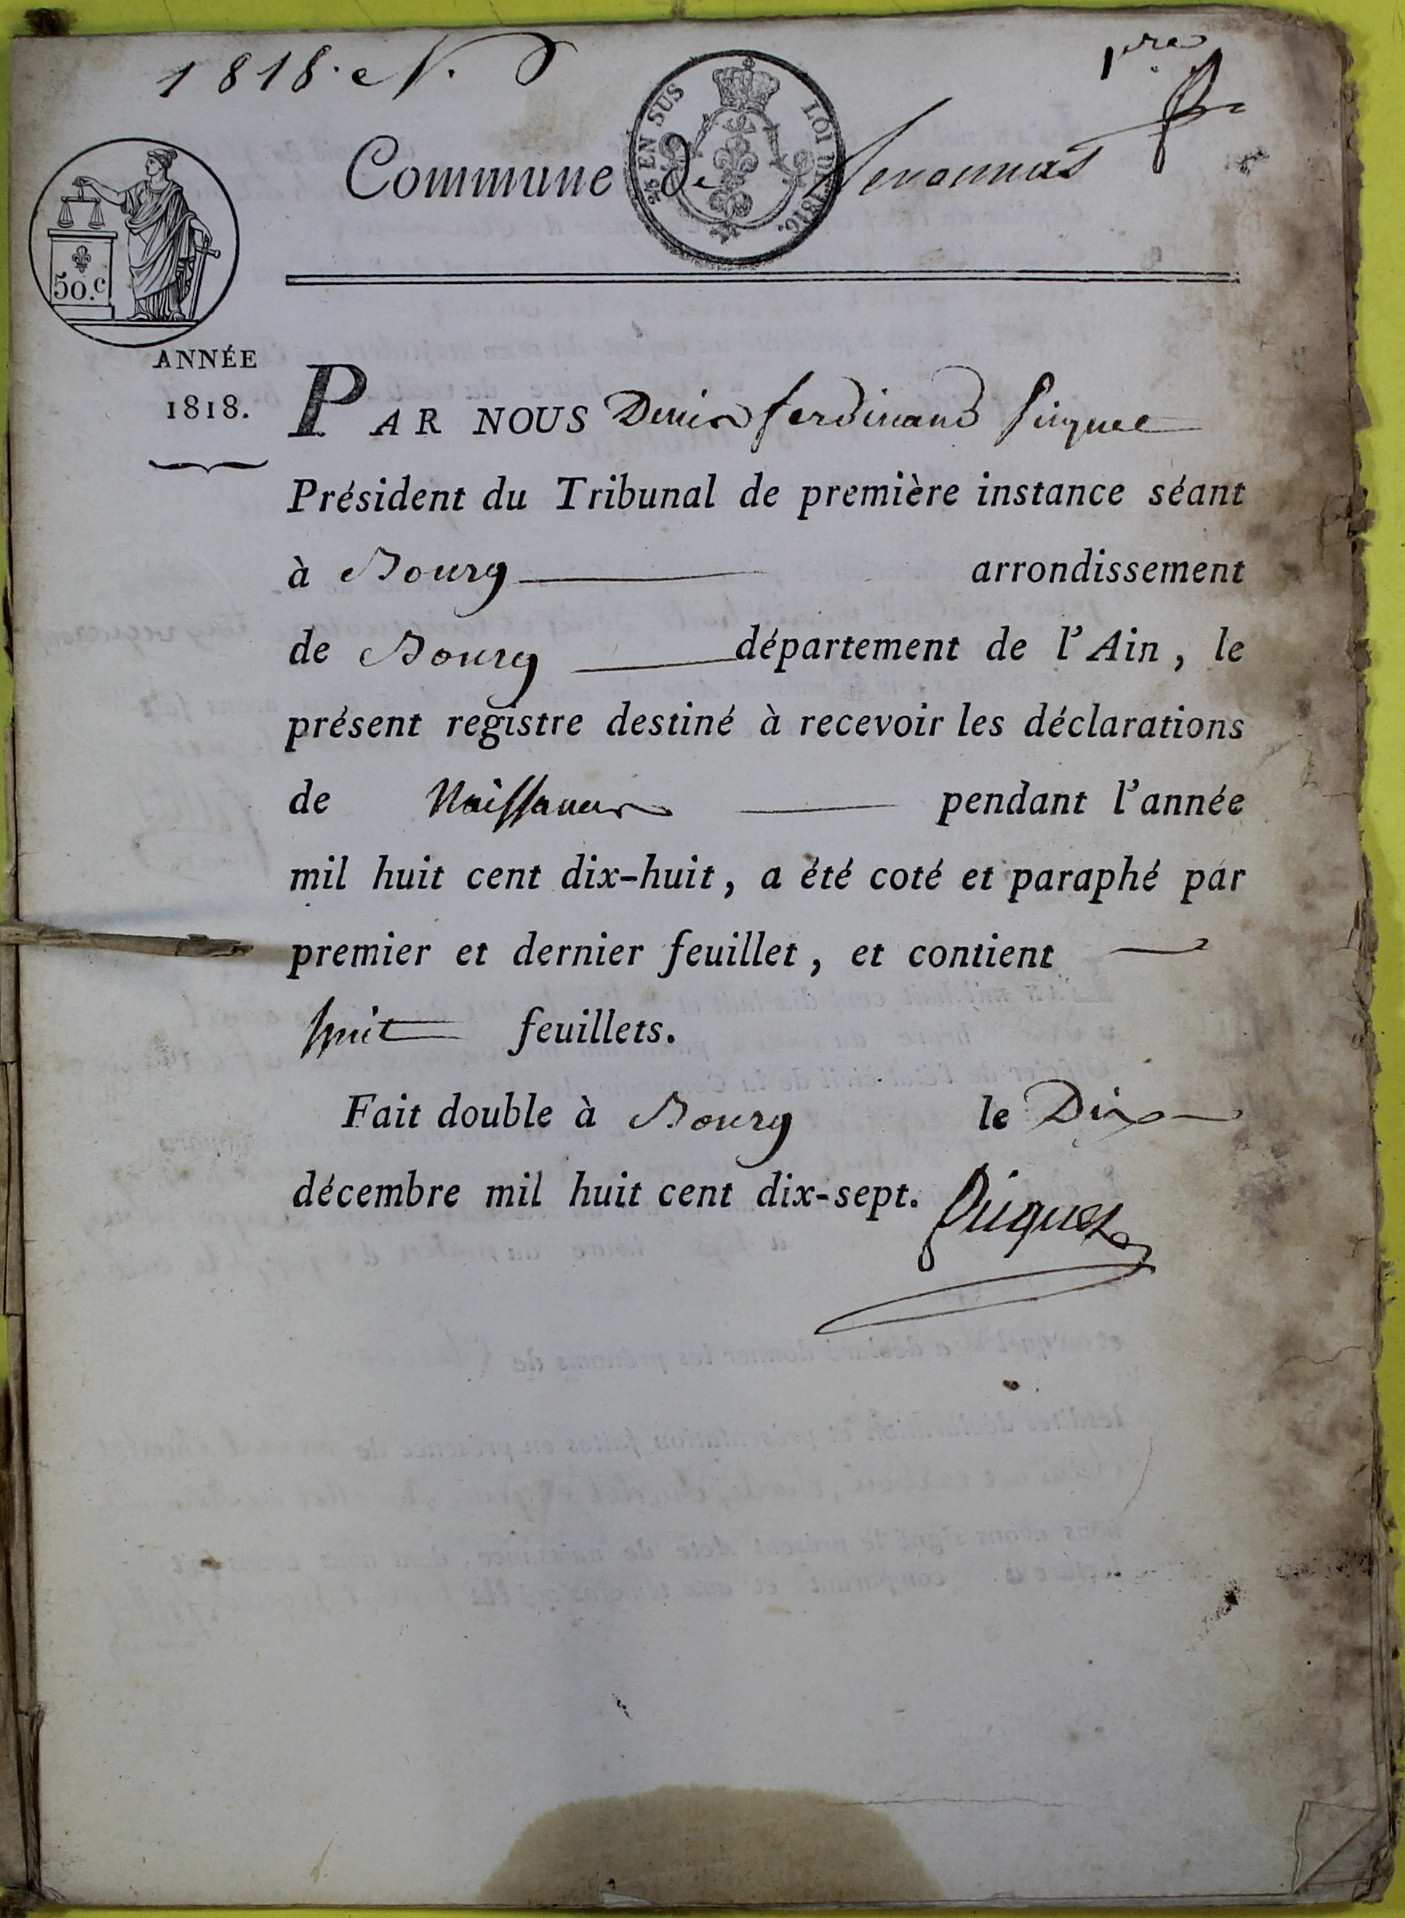 1818. N.
1re
2/5 EN SUS
LOI DE 1816.
Commune de Senonnas
50.c
ANNÉE
1818.
PAR NOUS Denis ferdinand Piquet
Président du Tribunal de première instance séant
à Bourg arrondissement
de Bourg département de l'Ain, le
présent registre destiné à recevoir les déclarations
de Naissances pendant l'année
mil huit cent dix-huit, a été coté et paraphé par
premier et dernier feuillet, et contient
huit feuillets.
Fait double à Bourg le Dix
décembre mil huit cent dix-sept.
Piquet